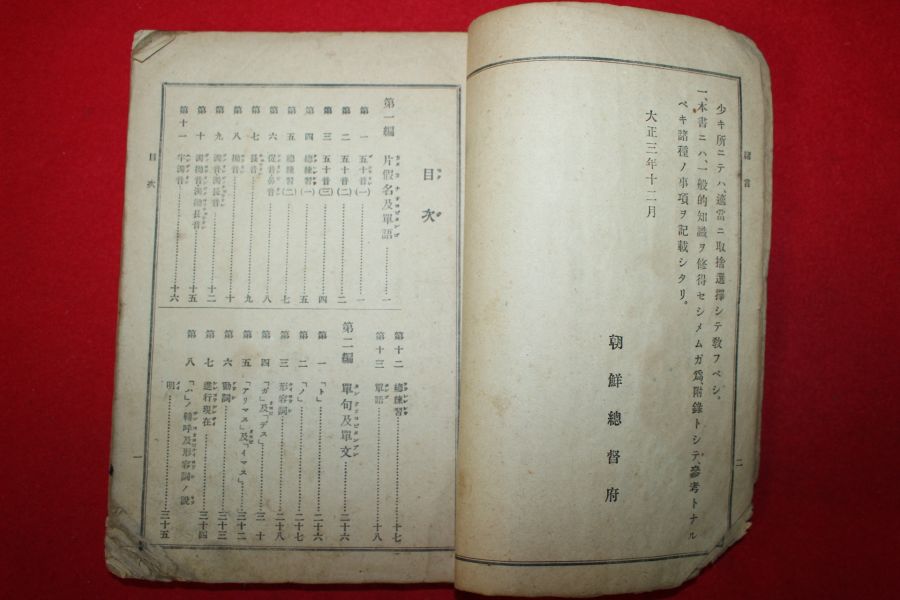 緒言
二
少キ所ニテハ、適當ニ取捨選擇シテ教フベシ。
一、本書ニハ、一般的知識ヲ修得セシメムガ爲、附錄トシテ、參考トナル
ベキ諸種ノ事項ヲ記載シタリ。
大正三年十二月
朝鮮總督府
目次
第一編 片假名及單語………一
第一 五十音(一)………一
第二 五十音(二)………二
第三 五十音(三)………四
第四 總練習(一)………五
第五 總練習(二)………七
第六 促音撥音………八
第七 長音………九
第八 拗音………十
第九 濁音濁長音………十二
第十 濁拗音濁拗長音………十五
第十一 半濁音………十六
第十二 總練習………十七
第十三 單語………十八
第二編 單句及單文………二十六
第一 「ト」………二十六
第二 「ノ」………二十七
第三 形容詞………二十八
第四 「ガ」及「デス」………三十
第五 「アリマス」及「イマス」………三十二
第六 動詞………三十三
第七 進行現在………三十四
第八 「ハ」ノ轉呼及形容詞ノ說
明………三十五
目次
一